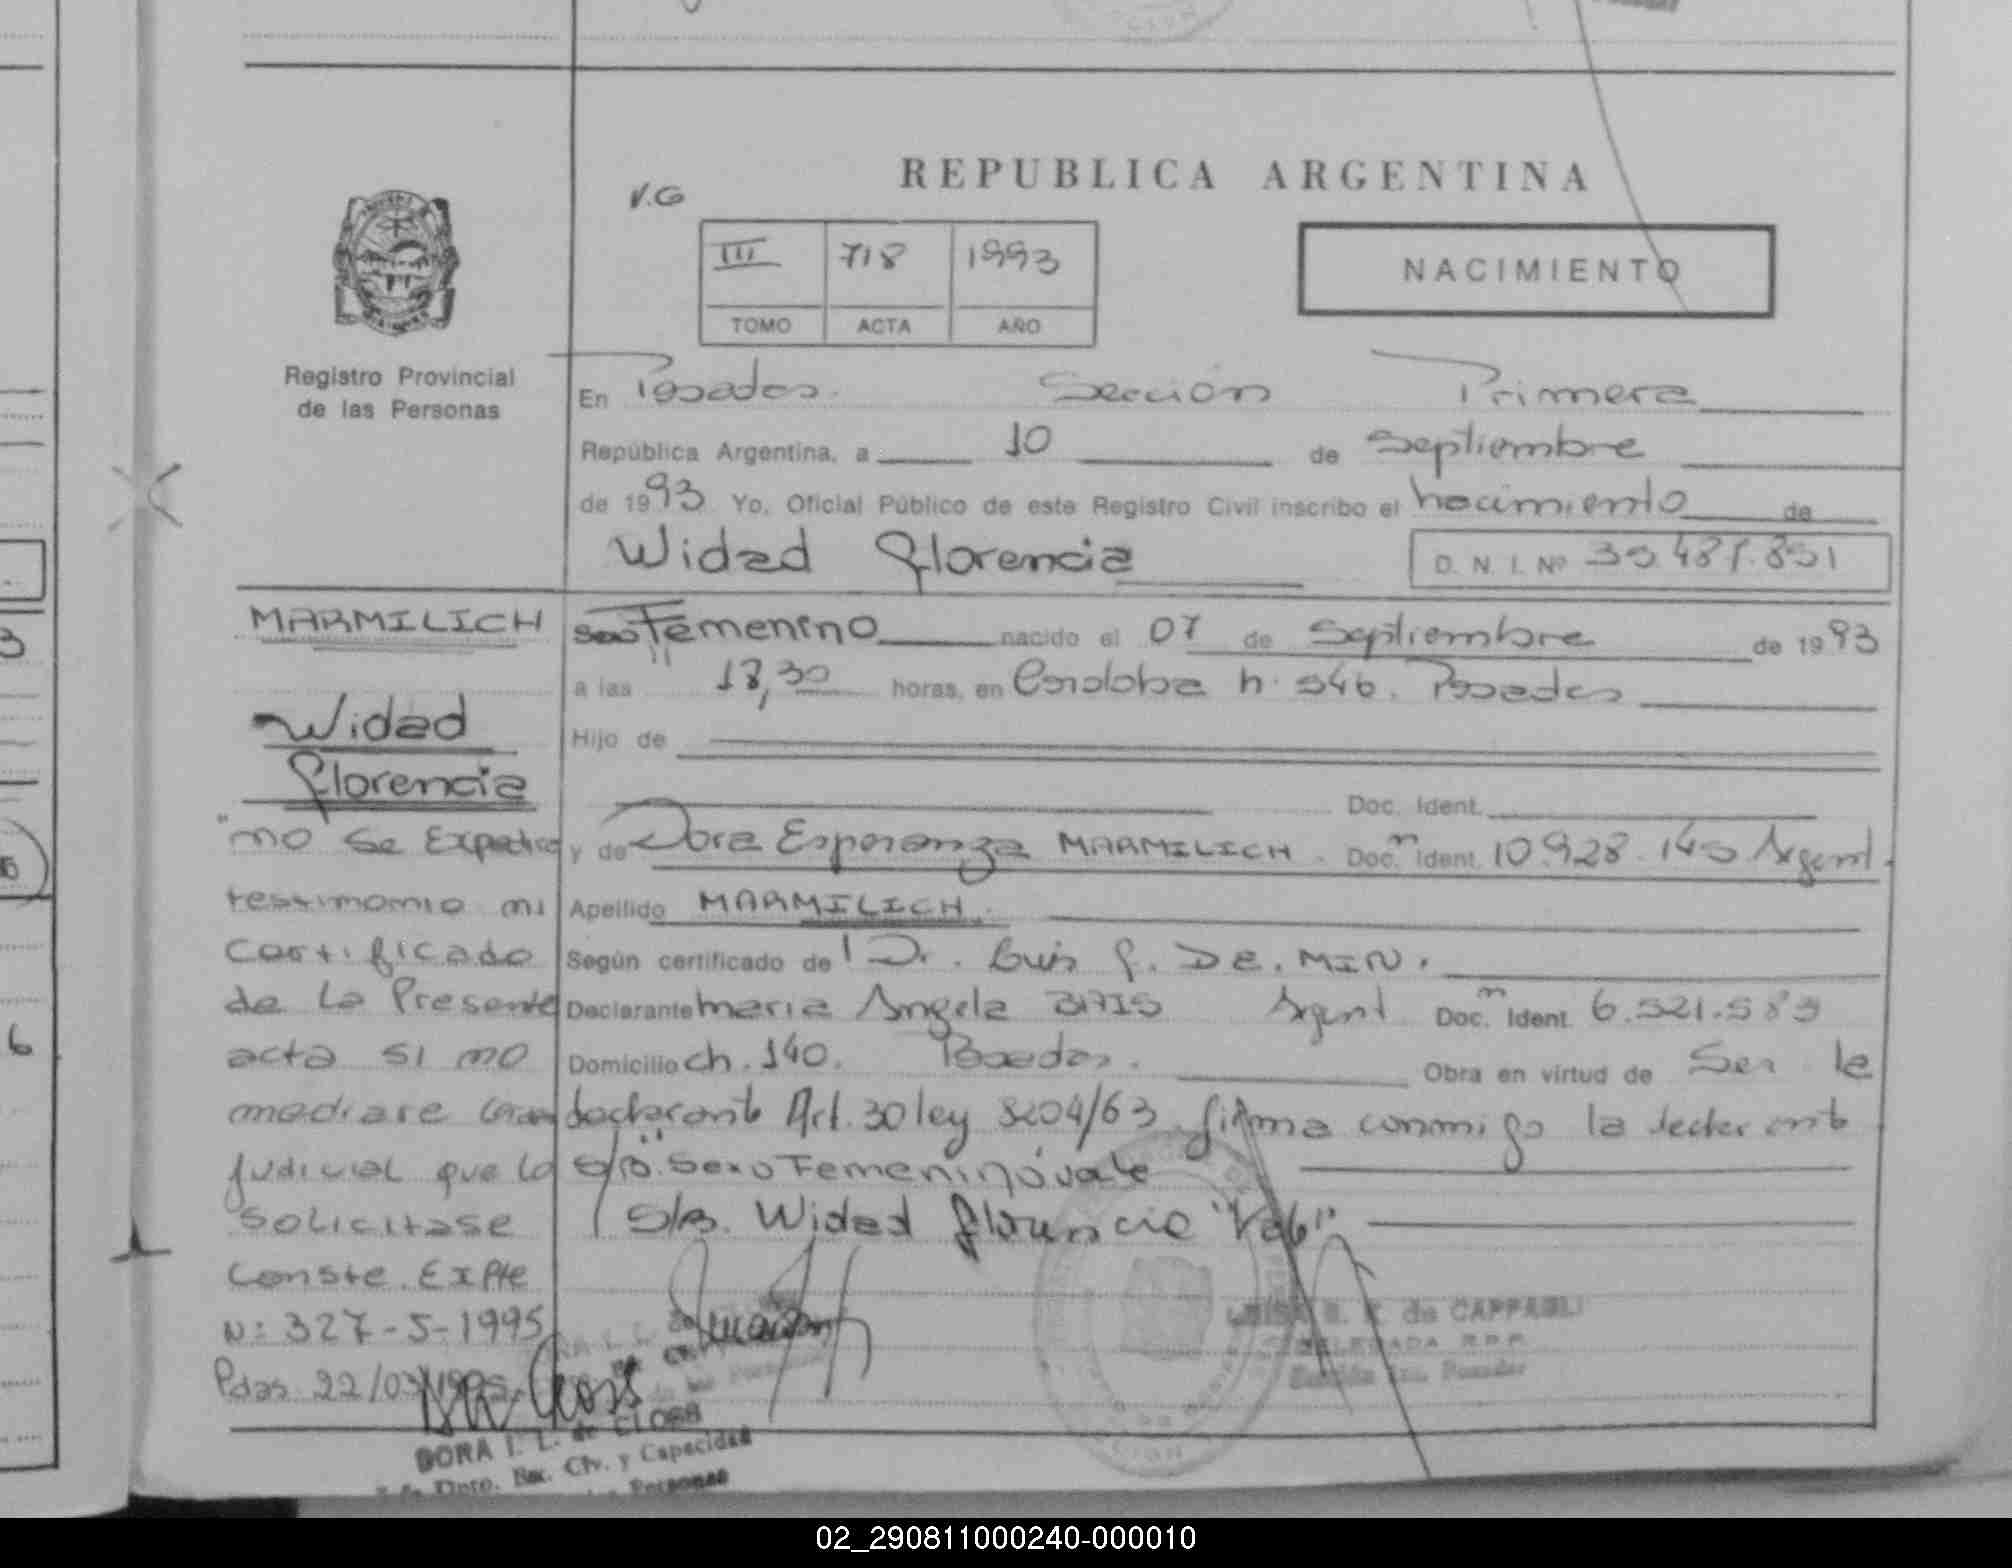 REPUBLICA ARGENTINA
V.G
III 718 1993
TOMO ACTA AÑO
NACIMIENTO
Registro Provincial
de las Personas
En Posadas. Sección Primera
República Argentina, a 10 de Septiembre
de 1993 Yo, Oficial Público de este Registro Civil inscribo el nacimiento de
Widad Florencia
D. N. I. Nº
MARMILICH
Widad
Florencia
"no se Expedira
testimonio ni
certificado
de la Presente
acta si no
mediare orden
judicial que lo
solicitase
Conste. Expte
N: 327-5-1995
Pdas 22/03/1995
sexo Femenino nacido el 07 de Septiembre de 1993
a las 18,30 horas, en Cordoba n. 546. Posadas
Hijo de
Doc. Ident.
y de Dora Esperanza MARMILICH. Doc. Ident. 10.928.145 Argent.
Apellido MARMILICH.
Según certificado de l Dr. Luis F. DE. MIN.
Declarante Maria Angela Argent Doc. Ident. 6.521.583
Domicilio ch. 140. Posadas. Obra en virtud de Ser la
declarante Art. 30 ley 8204/63 firma conmigo la declarante
S/B. Sexo Femenino vale
S/B. Widad Florencia "Vale"
de CAPPAGLI
DELEGADA R.P.P.
Sección 1ra. Posadas
DORA I. L. de
Dpto. Nac. Civ. y Capacidad
Personas
02_290811000240-000010